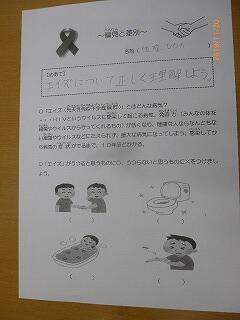 ～偏見と差別～
名前(
【めあて】
エイズについて正しく理解しよう。
○「エイズ(先天性免疫不全症候群)」とはどんな病気？
・・・ＨＩＶというウイルスに感染して起こる病気。免疫力（みんなの体を
細菌やウイルスから守ってくれるもの）が低くなり、健康な人ならなんともな
い細菌やウイルスなどにたえられず、重大な病気になってしまう。感染してか
ら病気の症状がでるまで、１０年ほどかかる。
○「エイズ」がうつると思うものに○、うつらないと思うものに×をつけましょ
う。
( )
( )
( )
( )